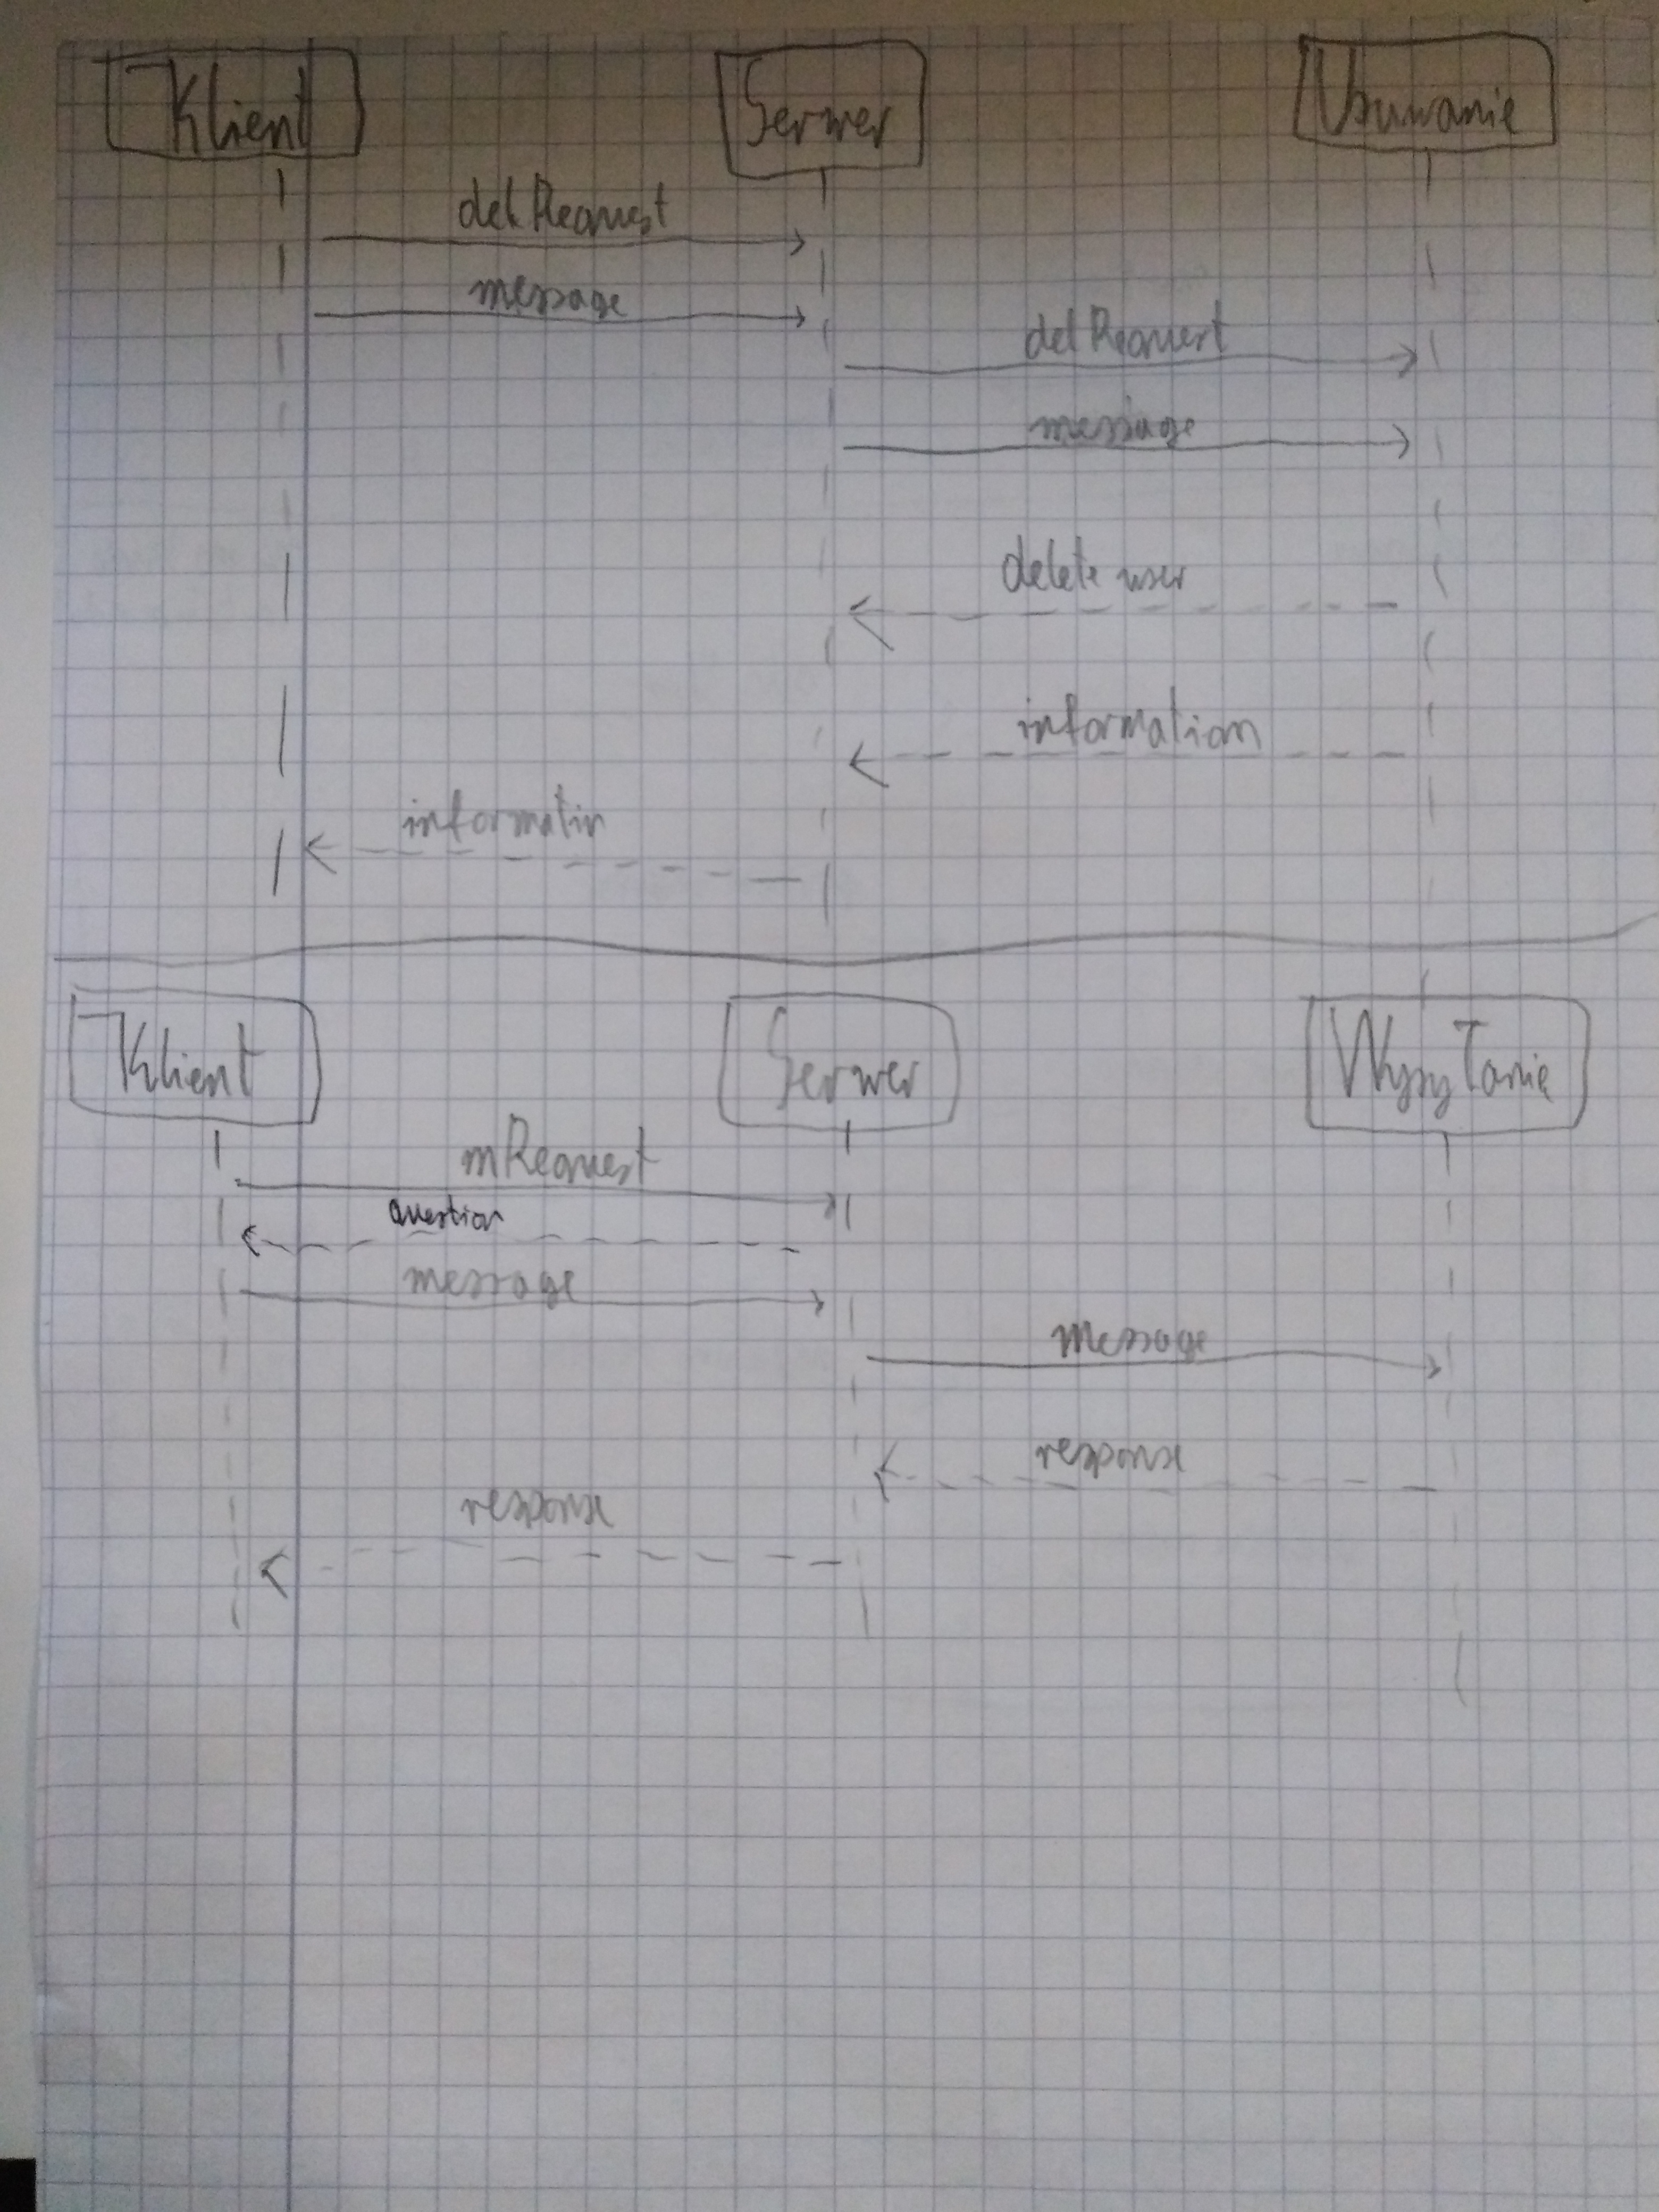 Klient Serwer Usuwanie
delRequest
message
delRequest
message
delete user
information
informatin
Klient Serwer Wysyłanie
mRequest
question
message
message
response
response